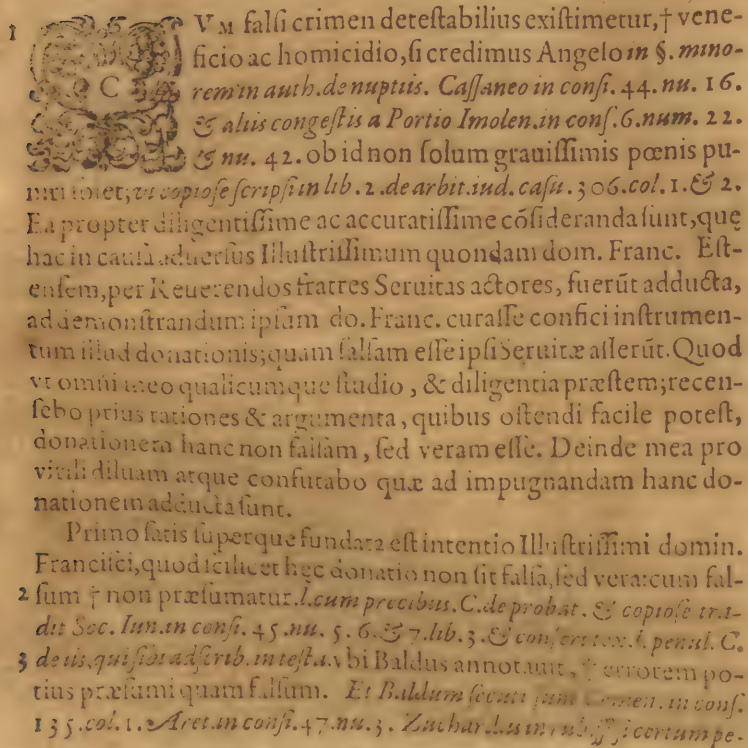 1 CVM falſi crimen deteſtabilius exiſtimetur, † vene-
ficio ac homicidio, ſi credimus Angelo in §. mino-
rem in auth. de nuptiis. Caſſaneo in conſi. 44. nu. 16.
& aliis congeſtis a Portio Imolen. in conſ. 6. num. 22.
& nu. 42. ob id non ſolum grauiſſimis pœnis pu-
niri ſolet, vt copioſe ſcripſi in lib. 2. de arbit. iud. caſu. 306. col. 1. & 2.
Ea propter diligentiſſime ac accuratiſſime cõſideranda ſunt, quę
hac in cauſa aduerſus Illuſtriſſimum quondam dom. Franc. Eſt-
enſem, per Reuerendos fratres Seruitas actores, fuerũt adducta,
ad demonſtrandum ipſum do. Franc. curaſſe confici inſtrumen-
tum illud donationis; quam falſam eſſe ipſi Seruitæ aſſerũt. Quod
vt omni meo qualicumque ſtudio, & diligentia præſtem; recen-
ſebo prius rationes & argumenta, quibus oſtendi facile poteſt,
donationem hanc non falſam, ſed veram eſſe. Deinde mea pro
virili diluam atque confutabo quæ ad impugnandam hanc do-
nationem adducta ſunt.
Primo ſatis ſuperque fundata eſt intentio Illuſtriſſimi domin.
Franciſci, quod ſcilicet hęc donatio non ſit falſa, ſed vera: cum fal-
2 ſum † non præſumatur. l. cum precibus. C. de probat. & copioſe tra-
dit Soc. Iun. in conſi. 45. nu. 5. 6. & 7. lib. 3. & confert tex. l. penul. C.
3 de iis, qui ſibi adſcrib. in teſta. vbi Baldus annotauit, † errorem po-
tius præſumi quam falſum. Et Baldum ſecuti ſunt in conſ.
135. col. 1. Aret. in conſi. 47. nu. 3. Zuchar. ſi certum pe-